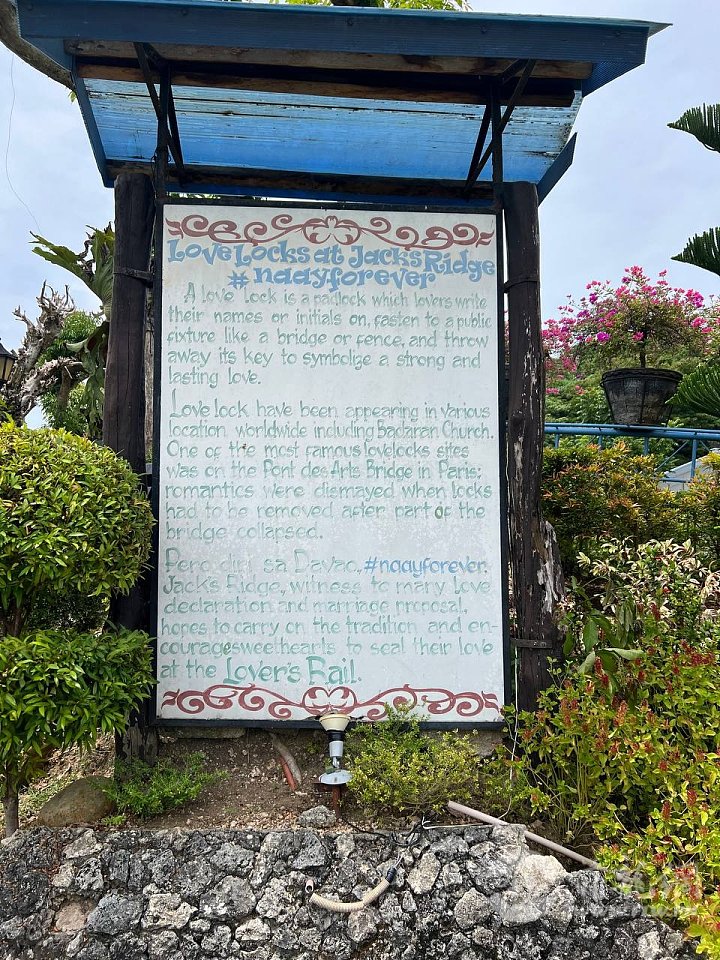 Love Locks at Jacks Ridge
#naayforever
A love lock is a padlock which lovers write
their names or initials on, fasten to a public
fixture like a bridge or fence, and throw
away its key to symbolize a strong and
lasting love.
Love lock have been appearing in various
location worldwide including Badaran Church.
One of the most famous lovelocks sites
was on the Pont des Arts Bridge in Paris;
romantics were dismayed when locks
had to be removed after part of the
bridge collapsed.
Pero diri sa Davao, #naayforever.
Jack's Ridge, witness to many love
declaration and marriage proposal,
hopes to carry on the tradition and en-
courage sweethearts to seal their love
at the Lover's Rail.